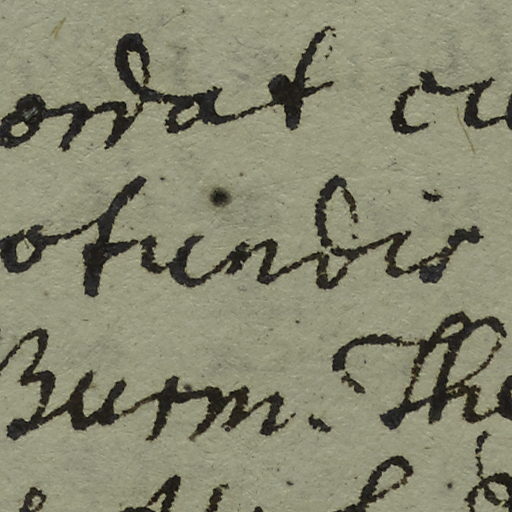 ordat cu
otundis
Burm. The